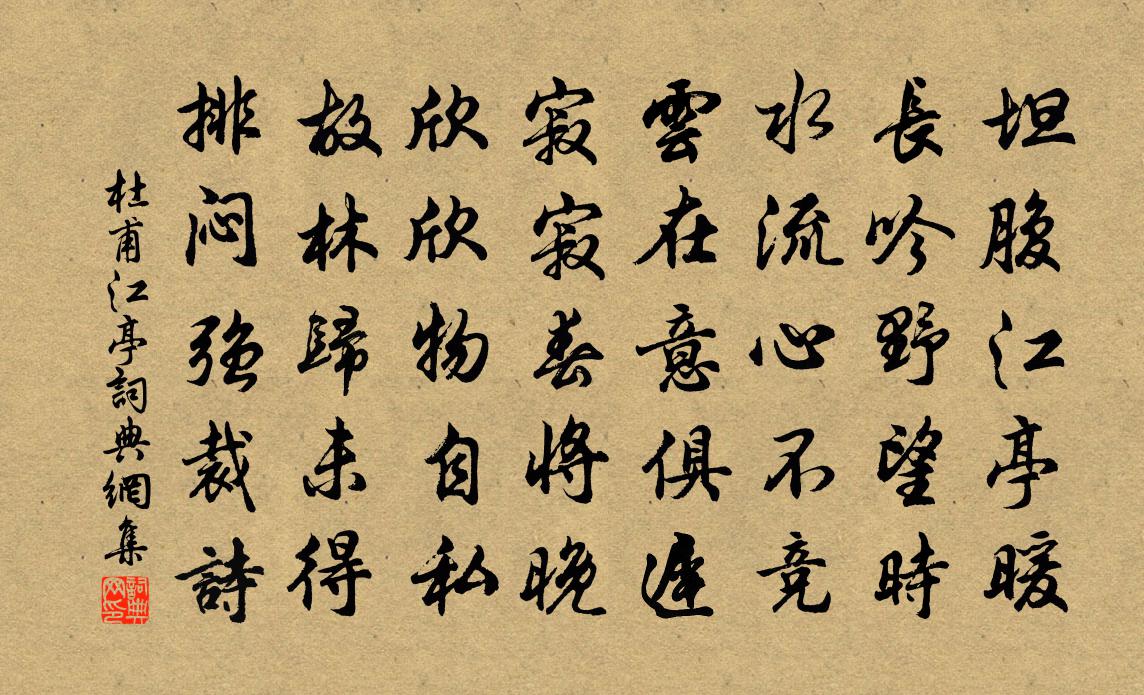 坦腹江亭暖
長吟野望時
水流心不競
雲在意俱遲
寂寂春將晚
欣欣物自私
故林歸未得
排闷強裁詩
杜甫江亭詞典網集
詞典
网印